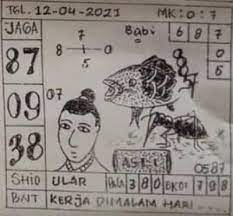 TGL. 12-04-2021 MK: 0 : 7
JAGA 7 Babi 6 8 7
87 8 0 0
5 6
09 07
38 ASLI 0587
SHIO ULAR 3 8 0 BKOI 7 9 8
BNT KERJA DIMALAM HARI